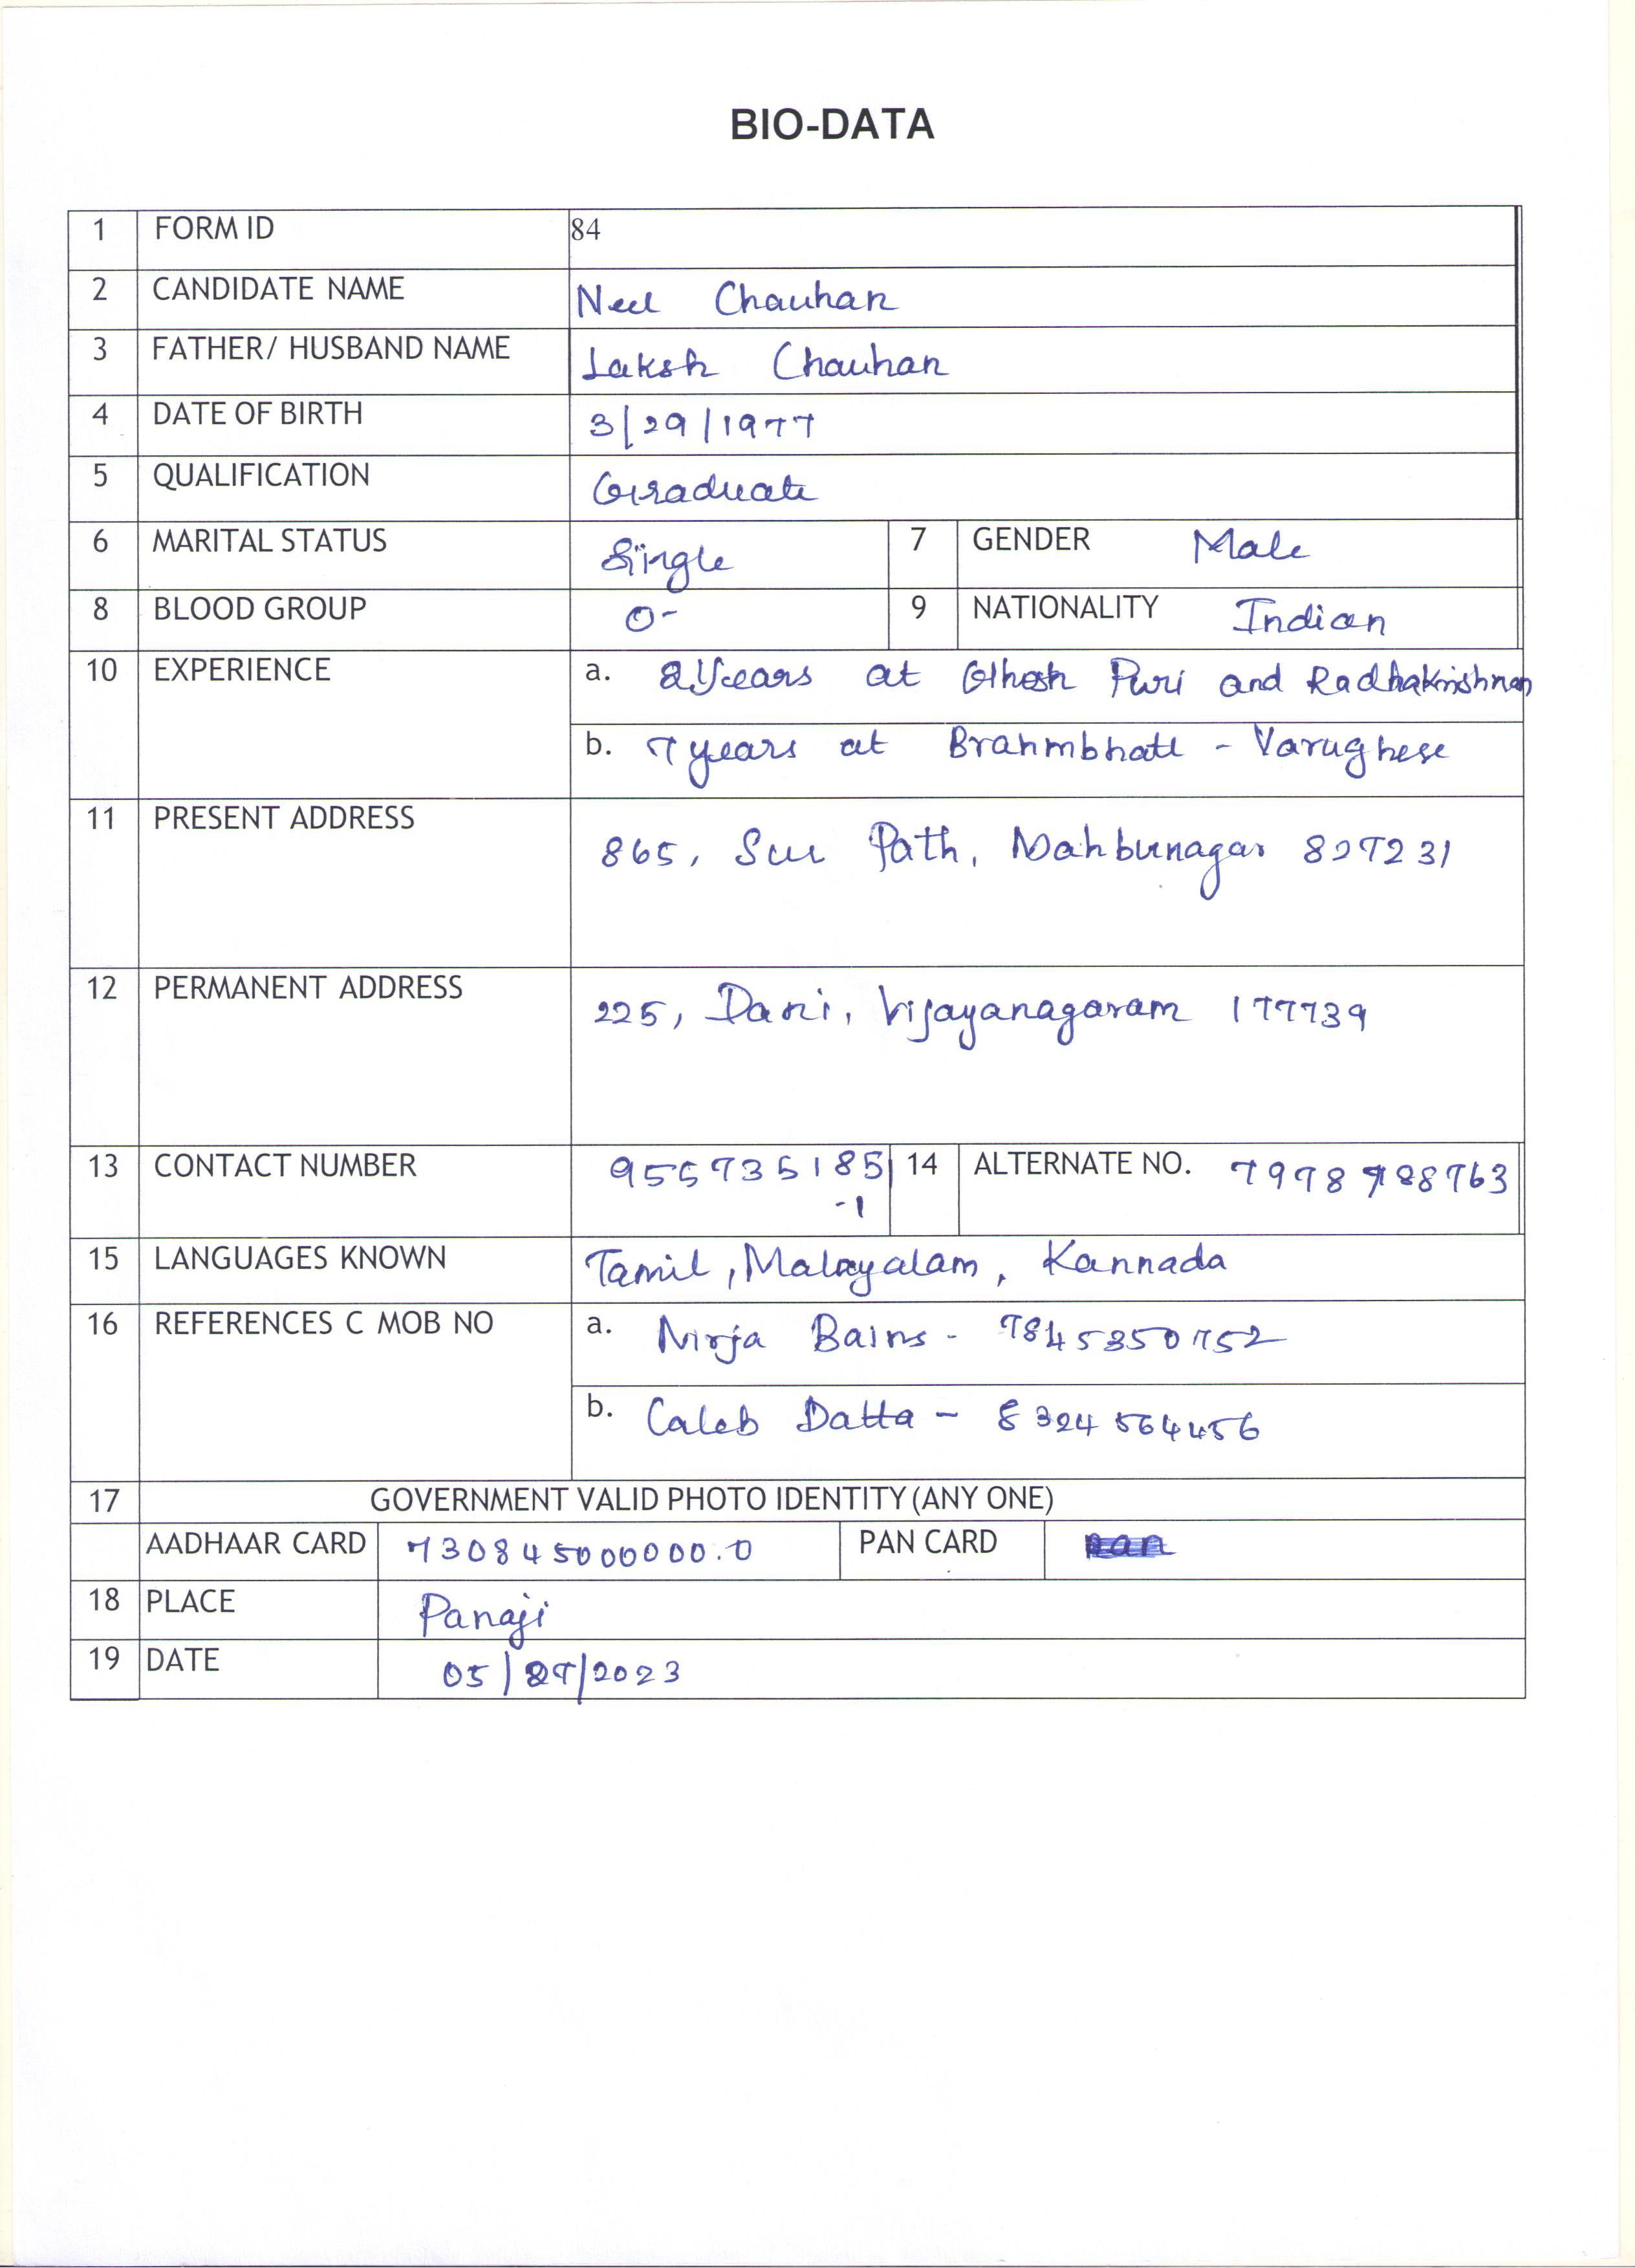 BIO-DATA
1 FORM ID 84
2 CANDIDATE NAME Neel Chauhan
3 FATHER/ HUSBAND NAME Laksh Chauhan
4 DATE OF BIRTH 3/29/1977
5 QUALIFICATION Graduate
6 MARITAL STATUS Single 7 GENDER Male
8 BLOOD GROUP O- 9 NATIONALITY Indian
10 EXPERIENCE a. 2 Years at Ghosh Puri and Radhakrishnan
b. 7 years at Brahmbhatt - Varughese
11 PRESENT ADDRESS 865, Sur Path, Mahbunagar 827231
12 PERMANENT ADDRESS 225, Dani, Vijayanagaram 177739
13 CONTACT NUMBER 955735185 14 ALTERNATE NO. 7978788763
-1
15 LANGUAGES KNOWN Tamil, Malayalam, Kannada
16 REFERENCES C MOB NO a. Nirja Bains - 7845850752
b. Caleb Datta - 8324564456
17 GOVERNMENT VALID PHOTO IDENTITY (ANY ONE)
AADHAAR CARD 730845000000.0 PAN CARD
18 PLACE Panaji
19 DATE 05/27/2023